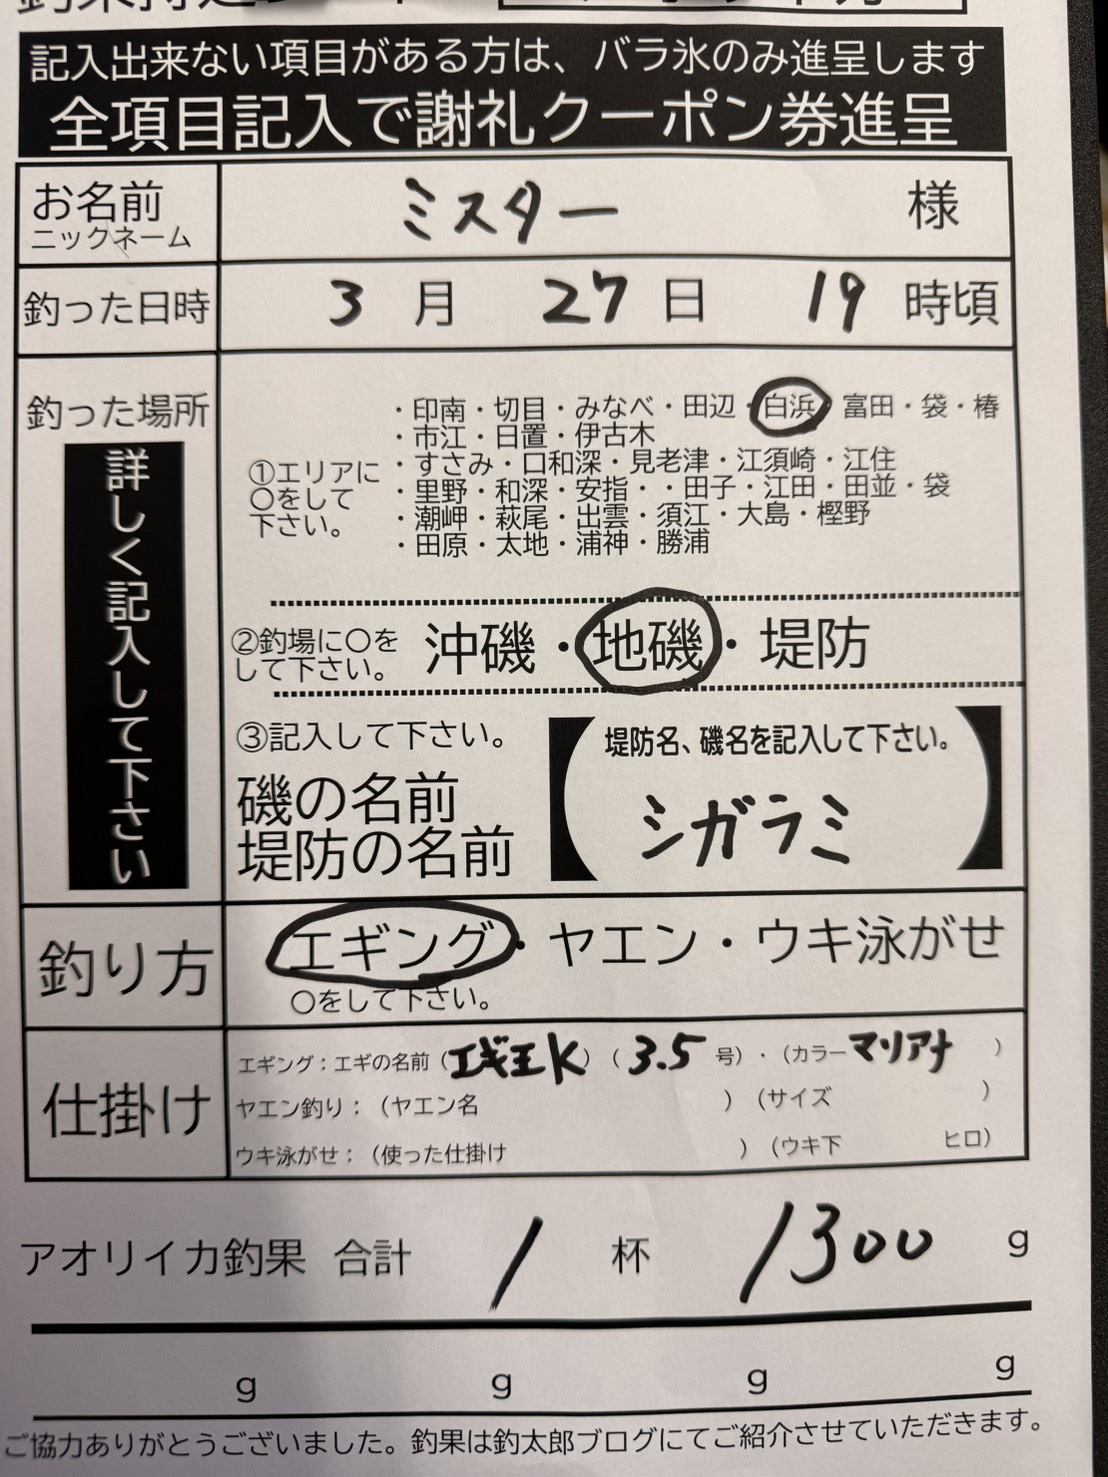 記入出来ない項目がある方は、バラ氷のみ進呈します
全項目記入で謝礼クーポン券進呈
お名前 ミスター 様
ニックネーム
釣った日時 3 月 27 日 19 時頃
釣った場所
詳しく記入して下さい
①エリアに
〇をして
下さい。
・印南・切目・みなべ・田辺・白浜・富田・袋・椿
・市江・日置・伊古木
・すさみ・口和深・見老津・江須崎・江住
・里野・和深・安指・・田子・江田・田並・袋
・潮岬・萩尾・出雲・須江・大島・樫野
・田原・太地・浦神・勝浦
②釣場に〇を
して下さい。
沖磯・地磯・堤防
③記入して下さい。
磯の名前
堤防の名前
【堤防名、磯名を記入して下さい。
シガラミ】
釣り方 エギング・ヤエン・ウキ泳がせ
〇をして下さい。
仕掛け
エギング：エギの名前（エギ王K）（3.5号）・（カラーマリアナ）
ヤエン釣り：（ヤエン名 ）（サイズ ）
ウキ泳がせ：（使った仕掛け ）（ウキ下 ヒロ）
アオリイカ釣果 合計 1 杯 1300 g
g g g g
ご協力ありがとうございました。釣果は釣太郎ブログにてご紹介させていただきます。